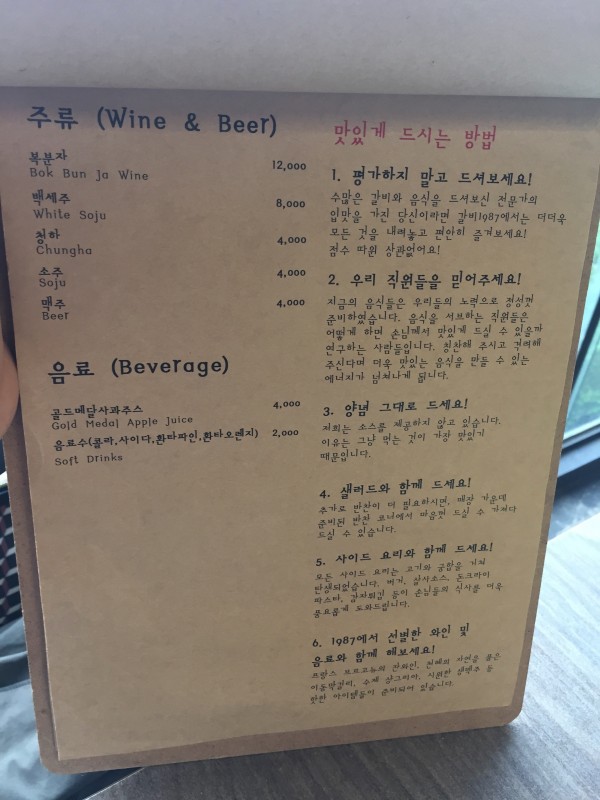 주류 (Wine & Beer)
복분자 12,000
Bok Bun Ja Wine
백세주 8,000
White Soju
청하 4,000
Chungha
소주 4,000
Soju
맥주 4,000
Beer
음료 (Beverage)
골드메달사과주스 4,000
Gold Medal Apple Juice
음료수(콜라,사이다,환타파인,환타오렌지) 2,000
Soft Drinks
맛있게 드시는 방법
1. 평가하지 말고 드셔보세요!
수많은 갈비와 음식을 드셔보신 전문가의
입맛을 가진 당신이라면 갈비1987에서는 더더욱
모든 것을 내려놓고 편안히 즐겨보세요!
점수 따윈 상관없어요!
2. 우리 직원들을 믿어주세요!
지금의 음식들은 우리들의 노력으로 정성껏
준비하였습니다. 음식을 서브하는 직원들은
어떻게 하면 손님께서 맛있게 드실 수 있을까
연구하는 사람들입니다. 칭찬해 주시고 격려해
주신다며 더욱 맛있는 음식을 만들 수 있는
에너지가 넘쳐나게 됩니다.
3. 양념 그대로 드세요!
저희는 소스를 제공하지 않고 있습니다.
이유는 그냥 먹는 것이 가장 맛있기
때문입니다.
4. 샐러드와 함께 드세요!
추가로 반찬이 더 필요하시면, 매장 가운데
준비된 반찬 코너에서 마음껏 드실 수 가져다
드실 수 있습니다.
5. 사이드 요리와 함께 드세요!
모든 사이드 요리는 고기와 궁합을 거쳐
탄생되었습니다. 버거, 살사소스, 돈크라이
파스타, 감자튀김 등이 손님들의 식사를 더욱
풍요롭게 도와드립니다.
6. 1987에서 선별한 와인 및
음료와 함께 해보세요!
프랑스 보르고뉴의 잔와인, 천혜의 자연을 품은
이동막걸리, 수제 상그리아, 시원한 생맥주 등
핫한 아이템들이 준비되어 있습니다.